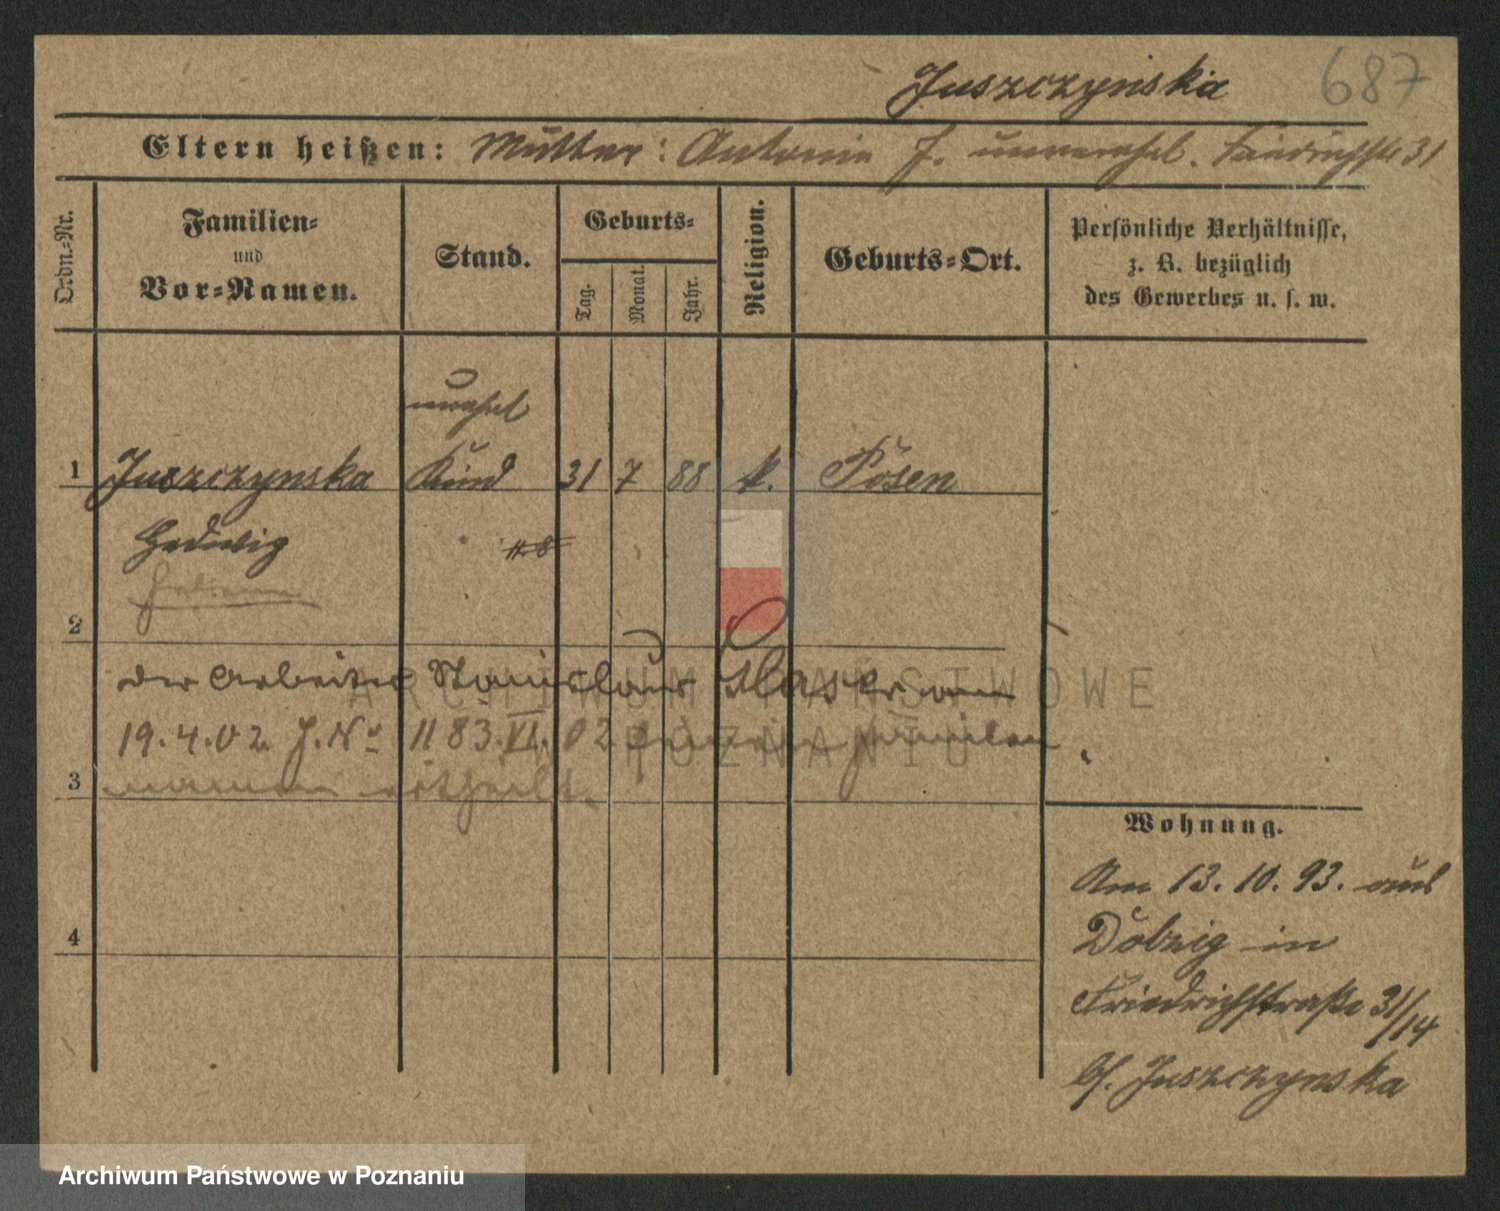 Juszczyńska 687
Eltern heißen: Mutter: Antonie J. unverehel. Friedrichstr 31
Ordn.-Nr.
Familien-
und
Vor-Namen.
Stand.
Geburts-
Tag.
Monat.
Jahr.
Religion.
Geburts-Ort.
Persönliche Verhältnisse,
z. B. bezüglich
des Gewerbes u. s. w.
unehel
1 Juszczynska Kind 31 7 88 k. Posen
Hedwig
2
der Arbeiter Stanislaus am
19.4.02. J. No 1183.VI.02 seinen Familien
3 namen ertheilt.
4
Wohnung.
Am 13.10.93. aus
Dolzig in
Friedrichstraße 31/14
bf. Juszczynska
ARCHIWUM PAŃSTWOWE
W POZNANIU
Archiwum Państwowe w Poznaniu